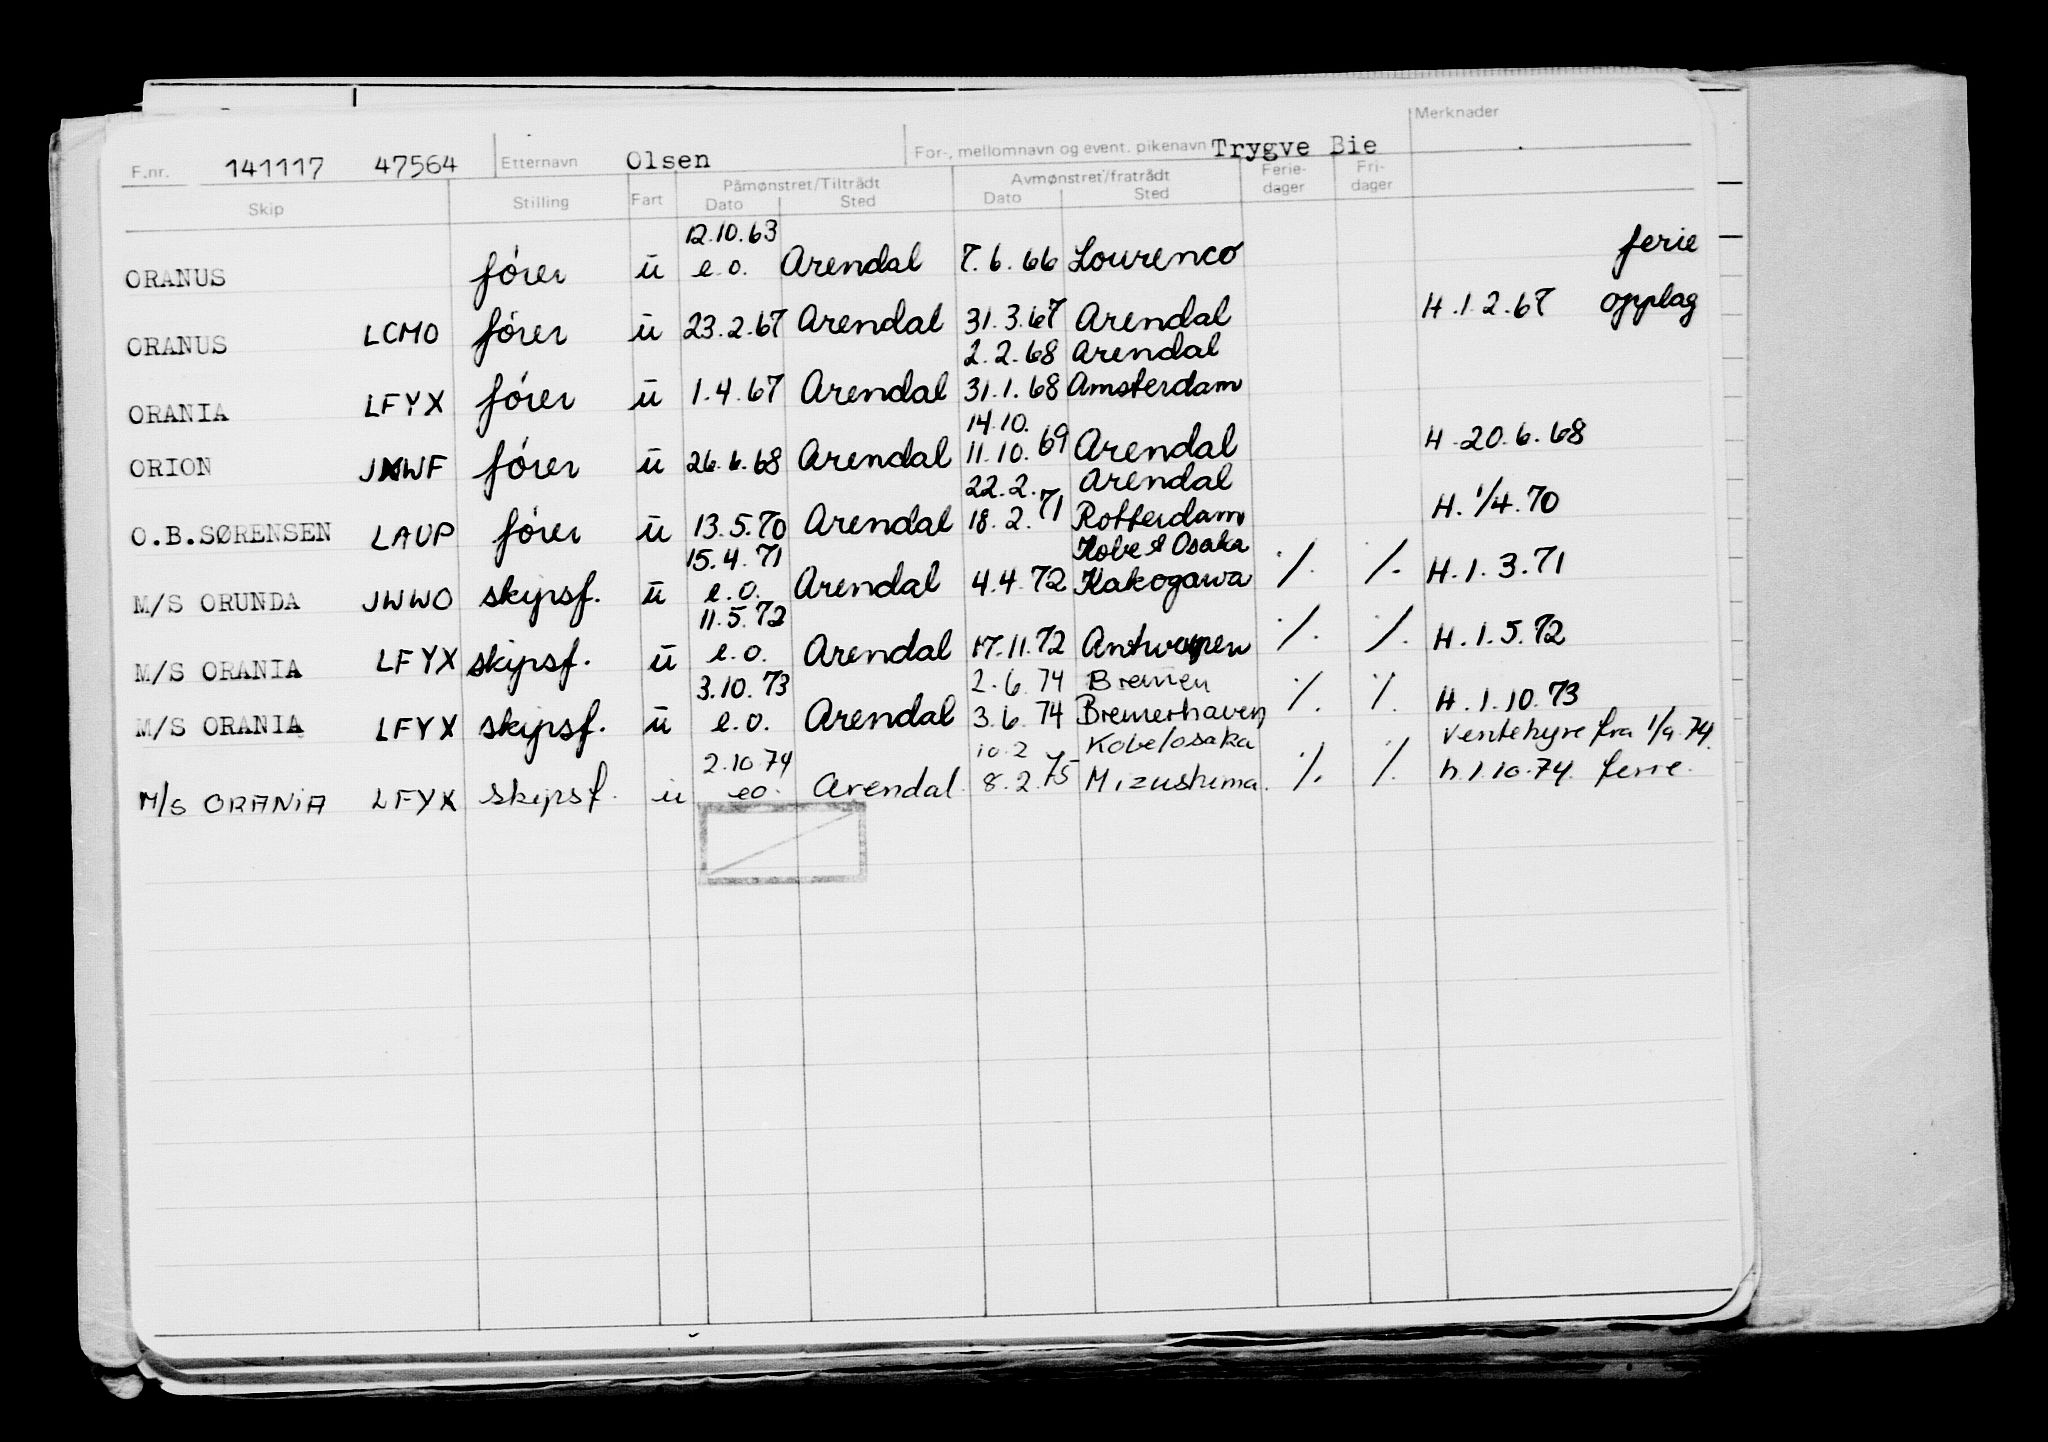 Merknader
F.nr. 141117 47564 Etternavn Olsen For-, mellomnavn og event. pikenavn Trygve Bie
Skip Stilling Fart Påmønstret/Tiltrådt Dato Sted Avmønstret/fratrådt Dato Sted Ferie-dager Fri-dager
12.10.63
ORANUS fører ū e.o. Arendal 7.6.66 Lourenco ferie
ORANUS LCMO fører ū 23.2.67 Arendal 31.3.67 Arendal H.1.2.67 opplag
2.2.68 Arendal
ORANIA LFYX fører ū 1.4.67 Arendal 31.1.68 Amsterdam
14.10.
ORION JXWF fører ū 26.6.68 Arendal 11.10.69 Arendal H.20.6.68
22.2. Arendal
O.B.SØRENSEN LAUP fører ū 13.5.70 Arendal 18.2.71 Rotterdam H.1/4.70
15.4.71 Kobe & Osaka
M/S ORUNDA JWWO skipsf. ū e.o. Arendal 4.4.72 Kakogawa ./. ./. H.1.3.71
11.5.72
M/S ORANIA LFYX skipsf. ū e.o. Arendal 17.11.72 Antwerpen ./. ./. H.1.5.72
3.10.73 2.6.74 Bremen
M/S ORANIA LFYX skipsf. ū e.o. Arendal 3.6.74 Bremerhaven ./. ./. H.1.10.73
2.10.74 10.2 Kobe/osaka ventehyre fra 1/9.74.
M/S ORANIA LFYX skipsf. u eo. Arendal. 8.2.75 Mizushima. ./. ./. h.1.10.74. ferie.